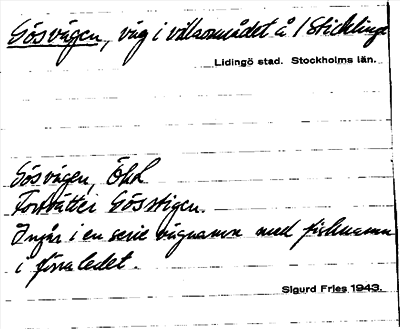 Gösvägen, väg i villaområdet å / Sticklinge
Lidingö stad. Stockholms län.
Gösvägen, ÖhL
Fortsätter Gösstigen.
Ingår i en serie vägnamn med fisknamn
i förra ledet.
Sigurd Fries 1943.